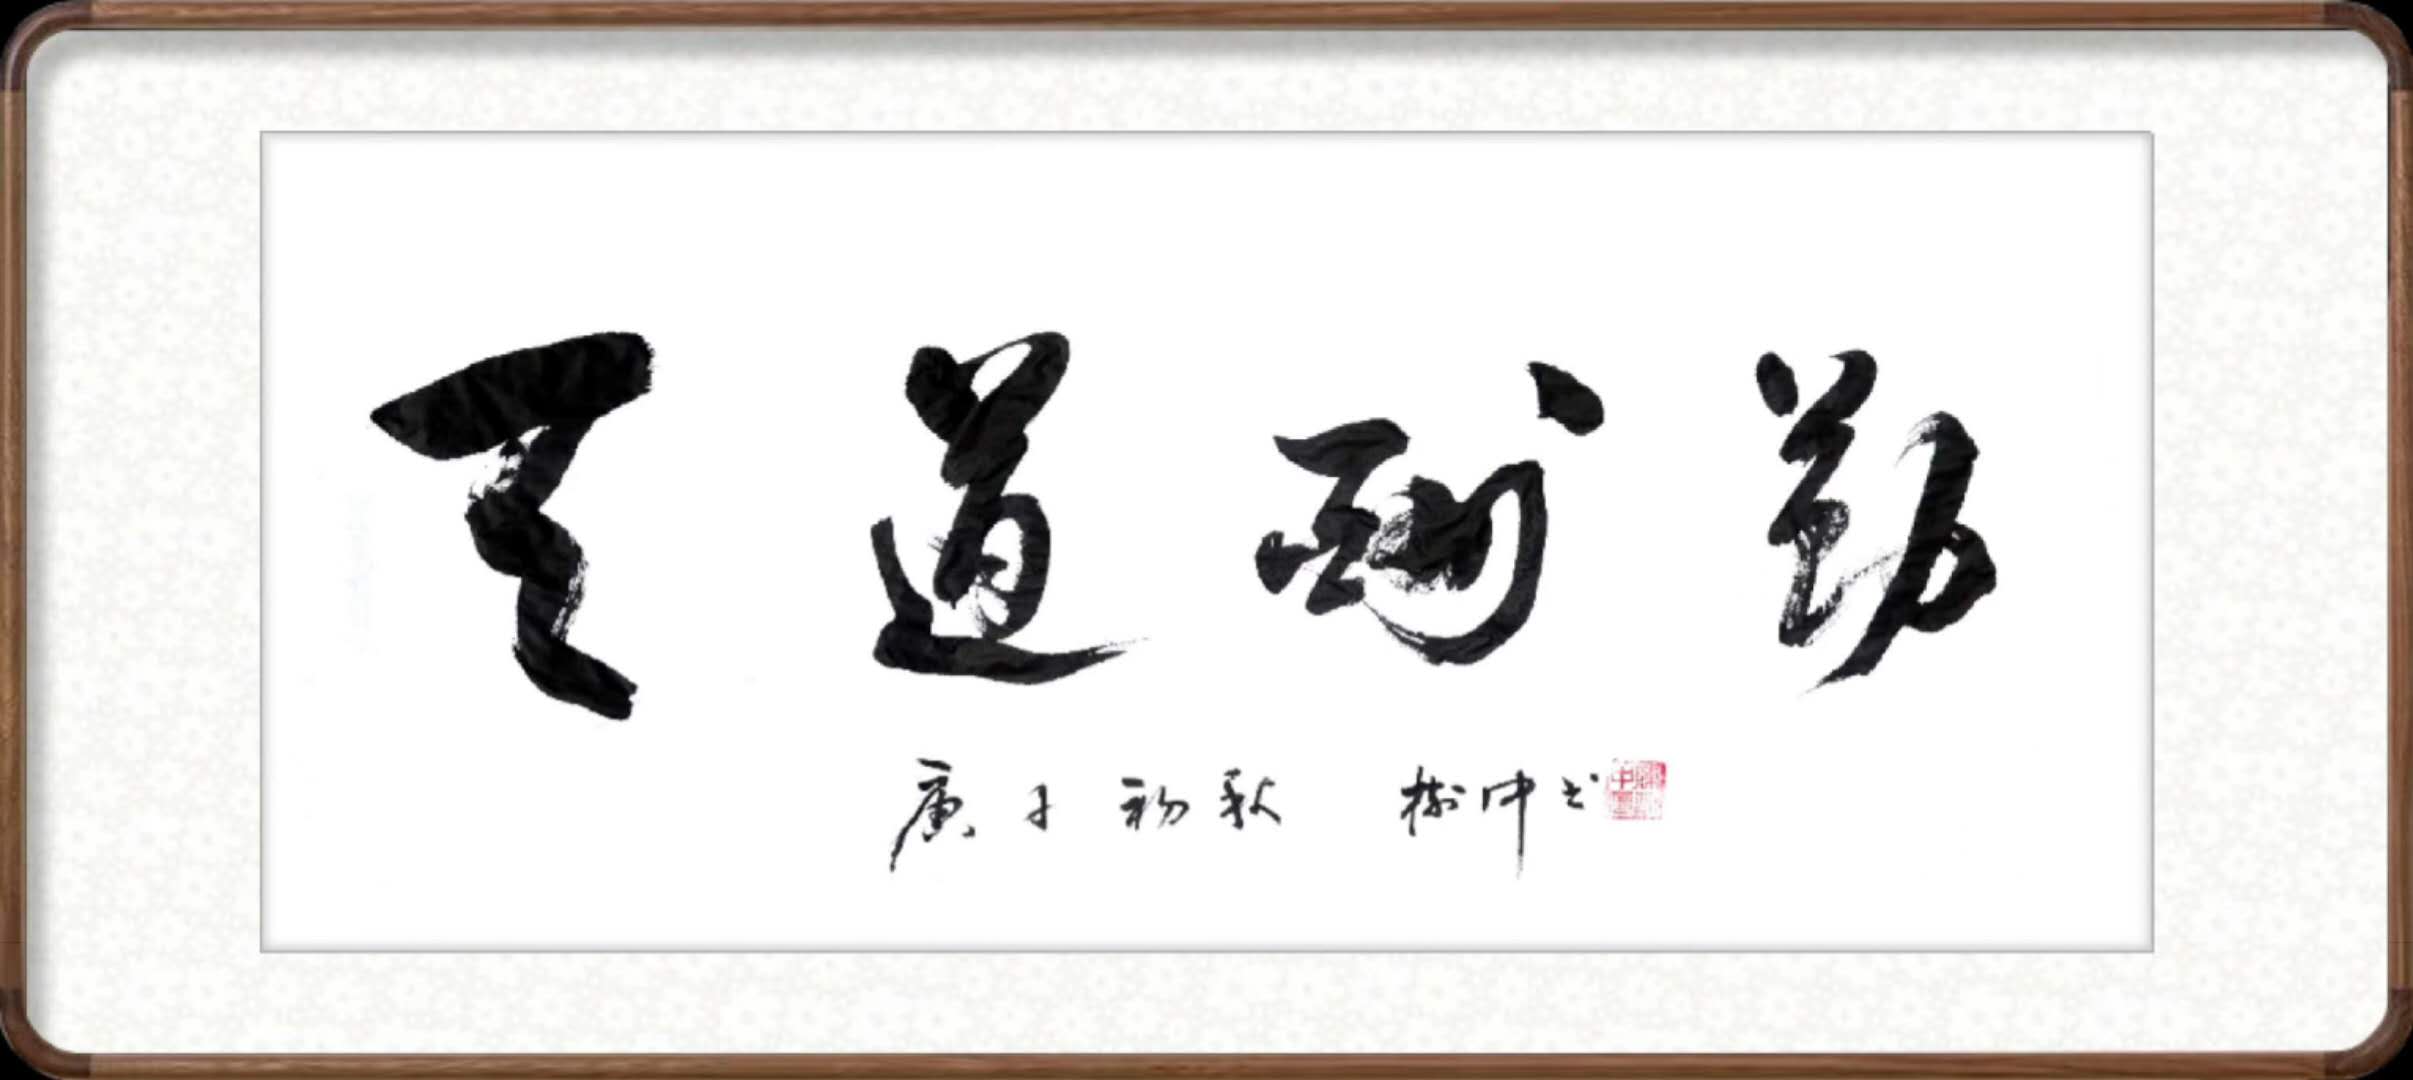 天道酬勤
庚子初秋 树中书